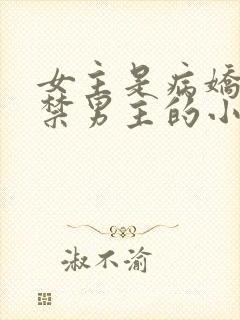 女主是病娇
禁男主的小
淑不渝